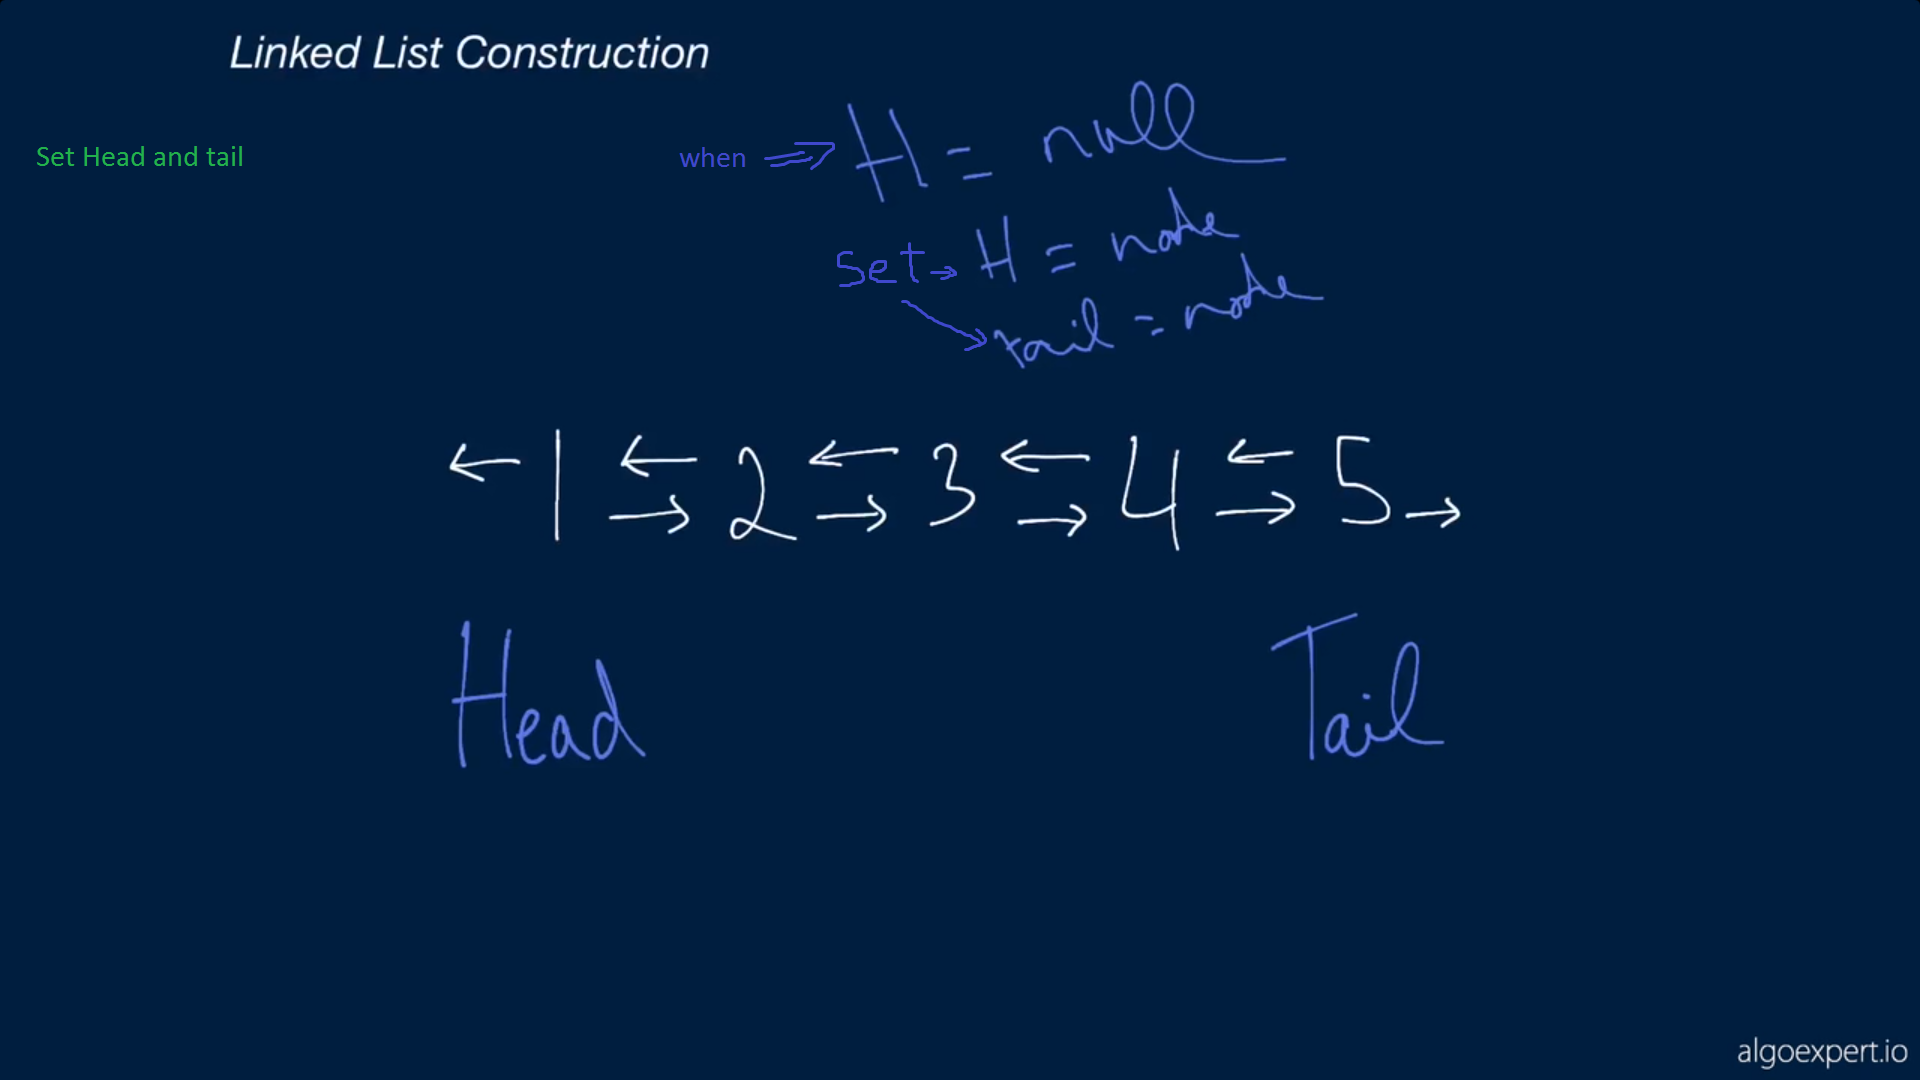 Linked List Construction
Set Head and tail
when H = null
Set H = node
tail = node
1 2 3 4 5
Head Tail
algoexpert.io